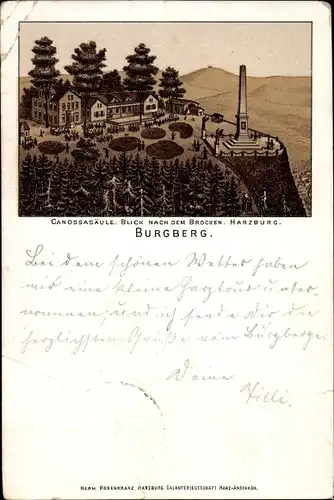 CANOSSASÄULE. BLICK NACH DEM BROCKEN. HARZBURG.
BURGBERG.
Bei dem schönen Wetter haben
wir eine kleine Harztour unter-
nommen, und ich sende Dir die
herzlichsten Grüße vom Burgberge.
Deine
Tilli.
HERM. ROSENKRANZ, HARZBURG. GALANTERIEGESCHÄFT HARZ-ANDENKEN.